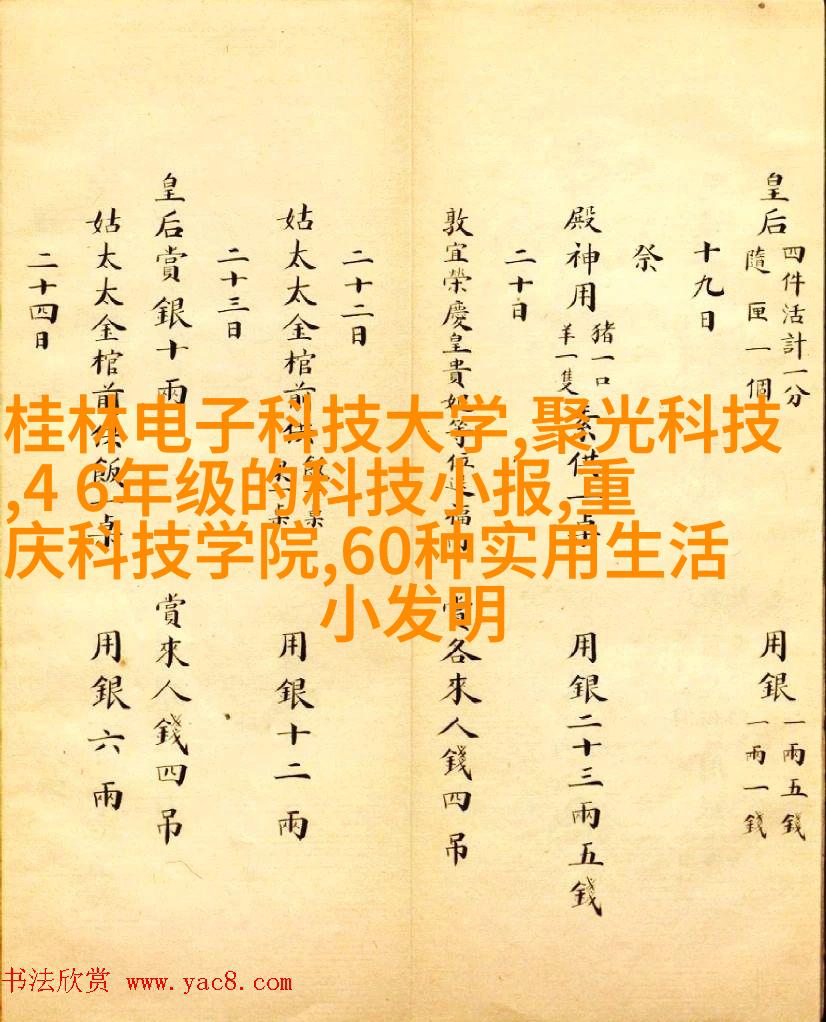 皇后
四件活計一分
隨匣一個
用銀
一兩五錢
一兩一錢
十九日
祭
殿神用
豬一口
羊一隻
素供一桌
用銀二十三兩五錢
二十日
敦宜榮慶皇貴妃等位送福
賞各來人錢四吊
二十二日
姑太太金棺前供飯一桌
用銀十二兩
二十三日
皇后賞銀十兩
賞來人錢四吊
姑太太金棺前供飯一桌
用銀六兩
二十四日
桂林电子科技大学,聚光科技
,4 6年级的科技小报,重
庆科技学院,60种实用生活
小发明
书法欣赏 www.yac8.com